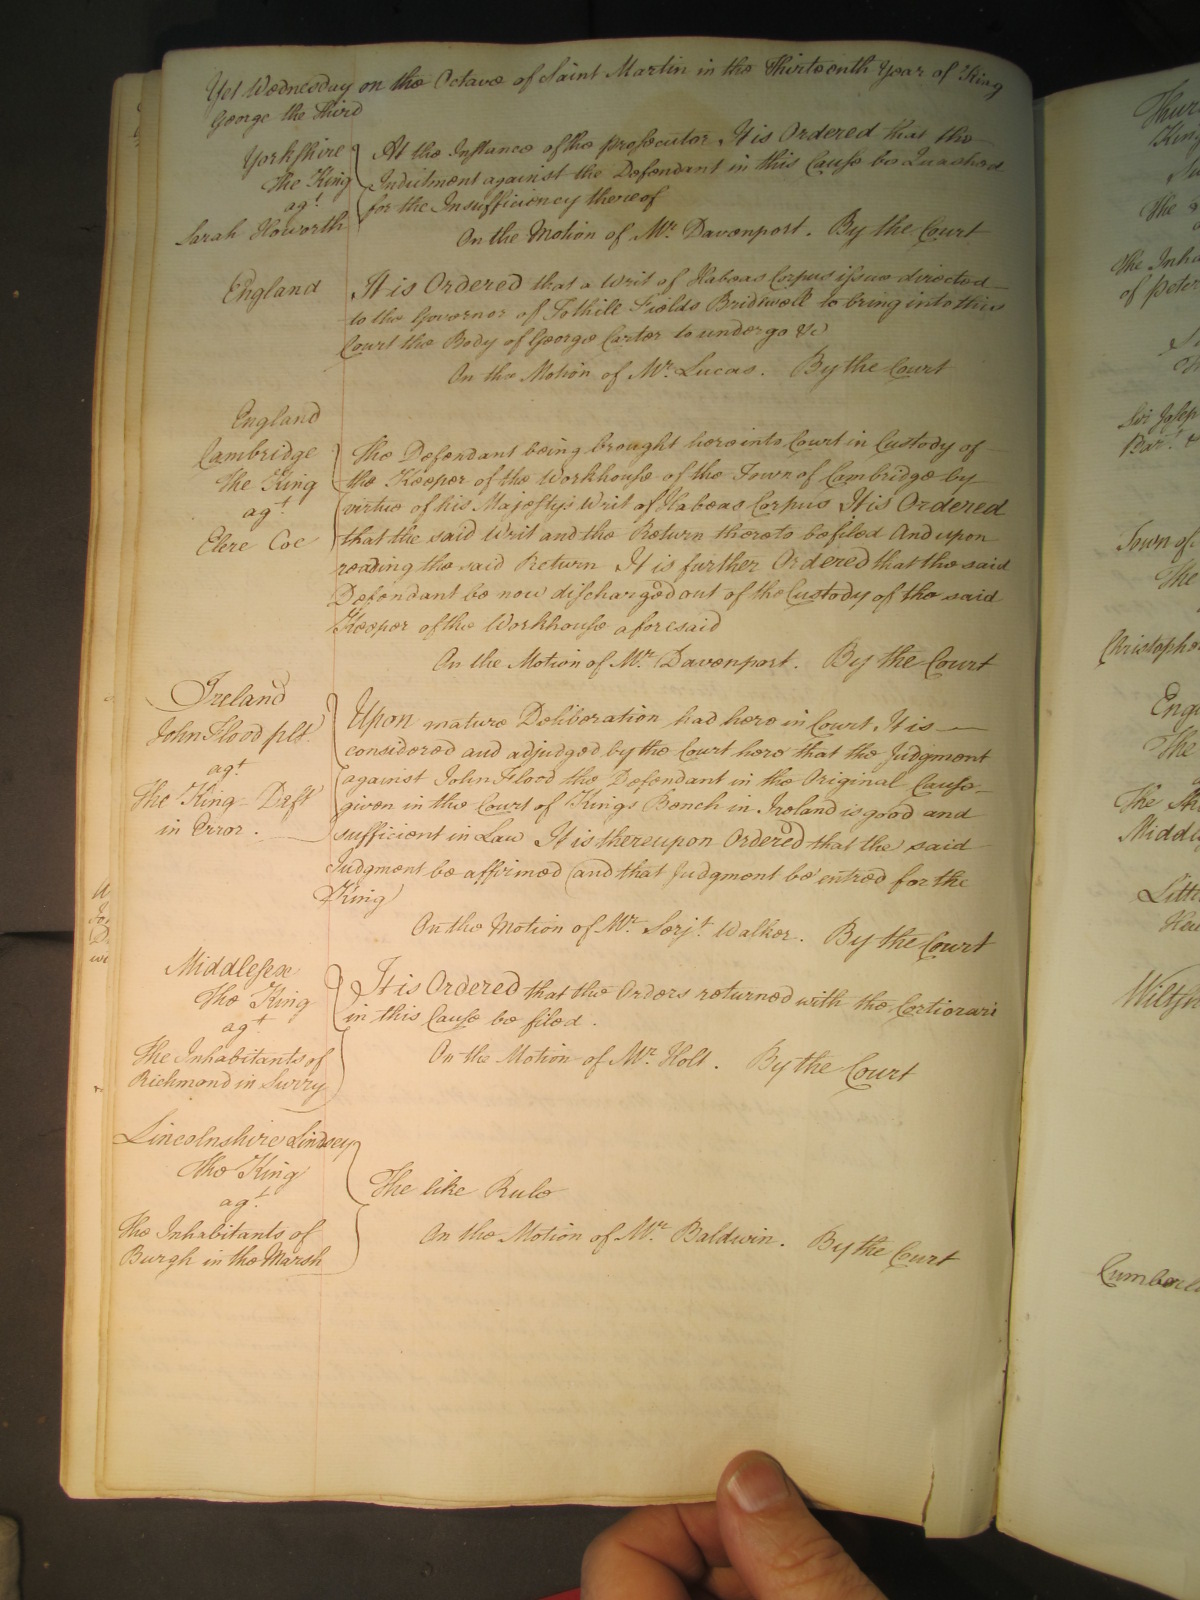 Yet Wednesday on the Octave of Saint Martin in the Thirteenth Year of King
George the Third
Yorkshire
The King
agt
Sarah Howorth
At the Instance of the prosecutor It is Ordered that the
Indictment against the Defendant in this Cause be Quashed
for the Insufficiency thereof
On the Motion of Mr. Davenport. By the Court
England
It is Ordered that a Writ of Habeas Corpus issue directed
to the Governor of Tothill Fields Bridewell to bring into this
Court the Body of George Carter to undergo &c
On the Motion of Mr. Lucas. By the Court
England
Cambridge
The King
agt.
Elere Coe
The Defendant being brought here into Court in Custody of
the Keeper of the Workhouse of the Town of Cambridge by
virtue of his Majesty's Writ of Habeas Corpus It is Ordered
that the said Writ and the Return thereto be filed And upon
reading the said Return It is further Ordered that the said
Defendant be now discharged out of the Custody of the said
Keeper of the Workhouse aforesaid
On the Motion of Mr. Davenport. By the Court
Ireland
John Flood plt.
agt
The King Deft
in Error.
Upon mature Deliberation had here in Court It is
considered and adjudged by the Court here that the Judgment
against John Flood the Defendant in the Original Cause
given in the Court of Kings Bench in Ireland is good and
sufficient in Law It is thereupon Ordered that the said
Judgment be affirmed and that Judgment be entred for the
King
On the Motion of Mr. Serjt. Walker. By the Court
Middlesex
The King
agt
The Inhabitants of
Richmond in Surry
It is Ordered that the Orders returned with the Certiorari
in this Cause be filed.
On the Motion of Mr. Holt. By the Court
Lincolnshire Lindsey
The King
agt.
The Inhabitants of
Burgh in the Marsh
The like Rule
On the Motion of Mr. Baldwin. By the Court
The
of peter
Town of
The
Christopher
The